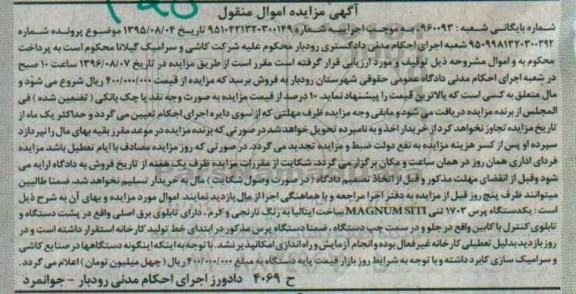 آگهی مزایده اموال منقول
شماره بایگانی شعبه : ۹۶۰۰۹۳ به موجب اجرائیه شماره ۹۵۱۰۴۲۱۳۲۰۳۰۰۱۴۹ تاریخ ۱۳۹۵/۰۸/۰۴ موضوع پرونده شماره
۹۵۰۹۹۸۱۳۲۰۳۰۰۳۹۲ شعبه اجرای احکام مدنی دادگستری رودبار محکوم علیه شرکت کاشی و سرامیک گیلانا محکوم است به پرداخت
محکوم به و اموال مشروحه ذیل توقیف و مورد ارزیابی قرار گرفته است مقرر است از طریق مزایده در تاریخ ۱۳۹۶/۰۸/۰۷ ساعت ۱۰ صبح
در شعبه اجرای احکام مدنی دادگاه عمومی حقوقی شهرستان رودبار به فروش برسد که مزایده از قیمت ۴۰۰/۰۰۰/۰۰۰ ریال شروع می شود و
مال متعلق به کسی است که بالاترین قیمت را پیشنهاد نماید. ۱۰ درصد از قیمت مزایده به صورت وجه نقد یا چک بانکی ( تضمین شده ) فی
المجلس از برنده مزایده دریافت می شود و مابقی وجه مزایده ظرف مهلتی که از سوی دایره اجرای احکام تعیین می گردد و حداکثر یک ماه از
تاریخ مزایده تجاوز نخواهد کرد از خریدار اخذ و به نامبرده تحویل خواهد شد در صورتی که برنده مزایده در موعد مقرر بقیه بهای مال را نپردازد
سپرده او پس از کسر هزینه مزایده به نفع دولت ضبط و مزایده تجدید می گردد. در صورتی که روز مزایده مصادف با ایام تعطیل باشد مزایده
فردای اداری همان روز در همان ساعت و مکان برگزار می گردد. شکایت از مقررات مزایده ظرف یک هفته از تاریخ فروش به دادگاه ارایه می
شود وقبل از انقضای مهلت مذکور و قبل از اتخاذ تصمیم دادگاه ( در صورت وصول شکایت ) مال به خریدار تسلیم نخواهد شد. ضمنا طالبین
میتوانند ظرف پنج روز قبل از مزایده به دفتر اجرا مراجعه و با هماهنگی اجرا از مال بازدید نمایند. اموال مورد مزایده و بهای آن به شرح ذیل
است : یکدستگاه پرس ۱۷۰۳ تنی MAGNUM SITI ساخت ایتالیا به رنگ نارنجی و کرم . دارای تابلوی برق اصلی واقع در پشت دستگاه و
تابلوی کنترل با کابین واقع در جلو و در سمت چپ دستگاه . ضمنا دستگاه پرس مذکور در ابتدای خط تولید کارخانه استقرار داشته است و در
روز بازدید بدلیل تعطیلی کارخانه غیر فعال بوده و انجام آزمایش و راه اندازی امکانپذیر نشد. با توجه به اینکه اینگونه دستگاهها در صنایع کاشی
و سرامیک سازی کابرد داشته و با توجه به شرایط روز بازار قیمت پایه دستگاه به مبلغ ۴۰۰/۰۰۰/۰۰۰ ریال (چهل میلیون تومان) اعلام می گردد.
ح ۴۰۶۹ دادورز اجرای احکام مدنی رودبار - جوانمرد